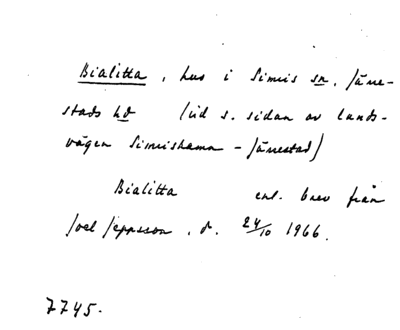 Bialitta, hus i Simris sn. Järre-
stads hd (vid s. sidan av lands-
vägen Simrishamn - Järrestad)
Bialitta enl. brev från
Joel Jeppsson, d. 24/10 1966.
7745.